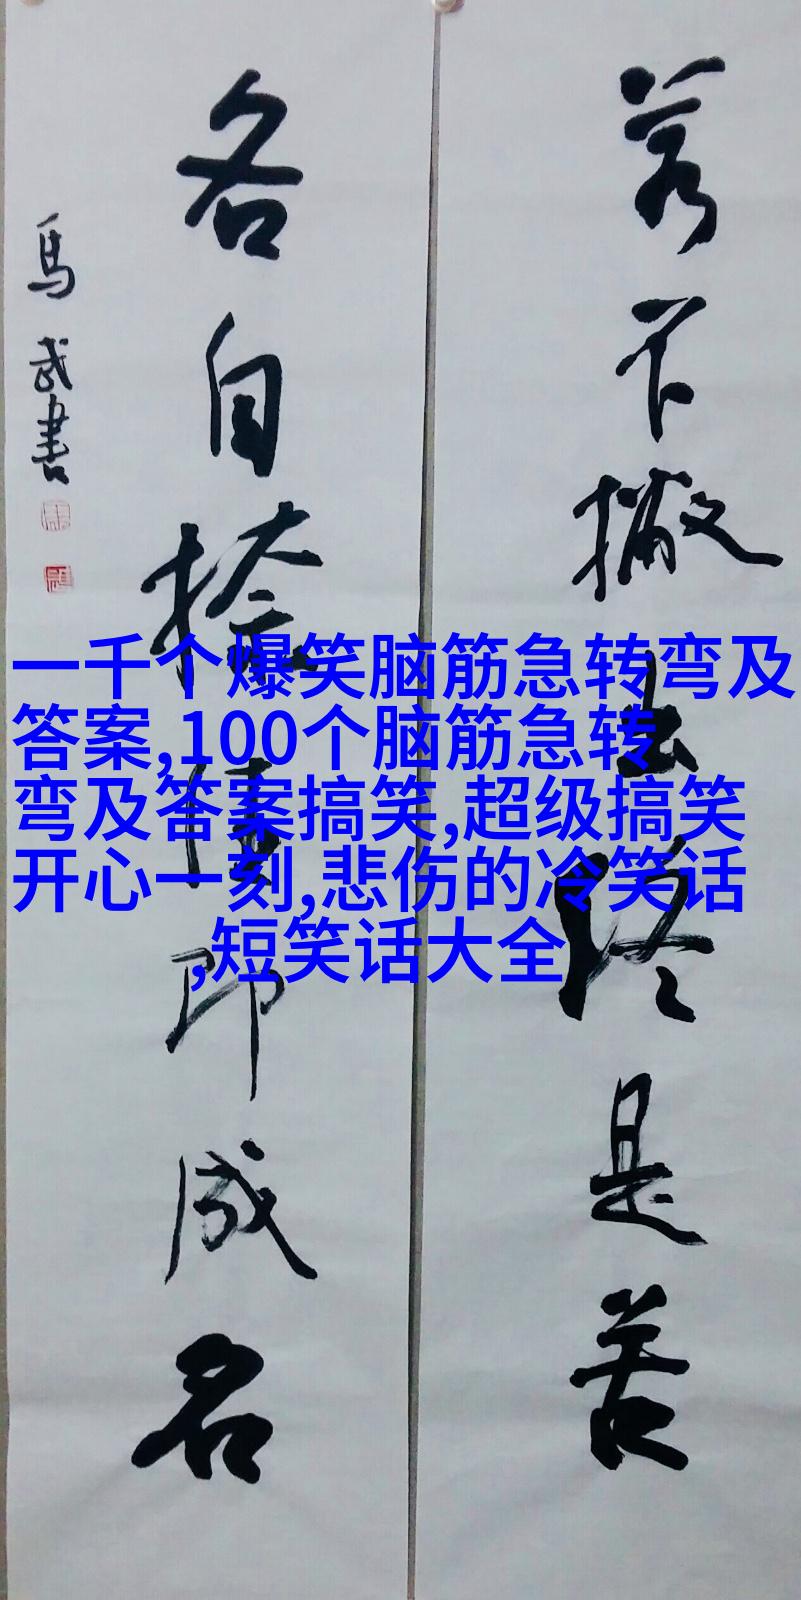 若不撇出终是苦
各自捺住即成名
馬武書
一千个爆笑脑筋急转弯及
答案,100个脑筋急转
弯及答案搞笑,超级搞笑
开心一刻,悲伤的冷笑话
,短笑话大全